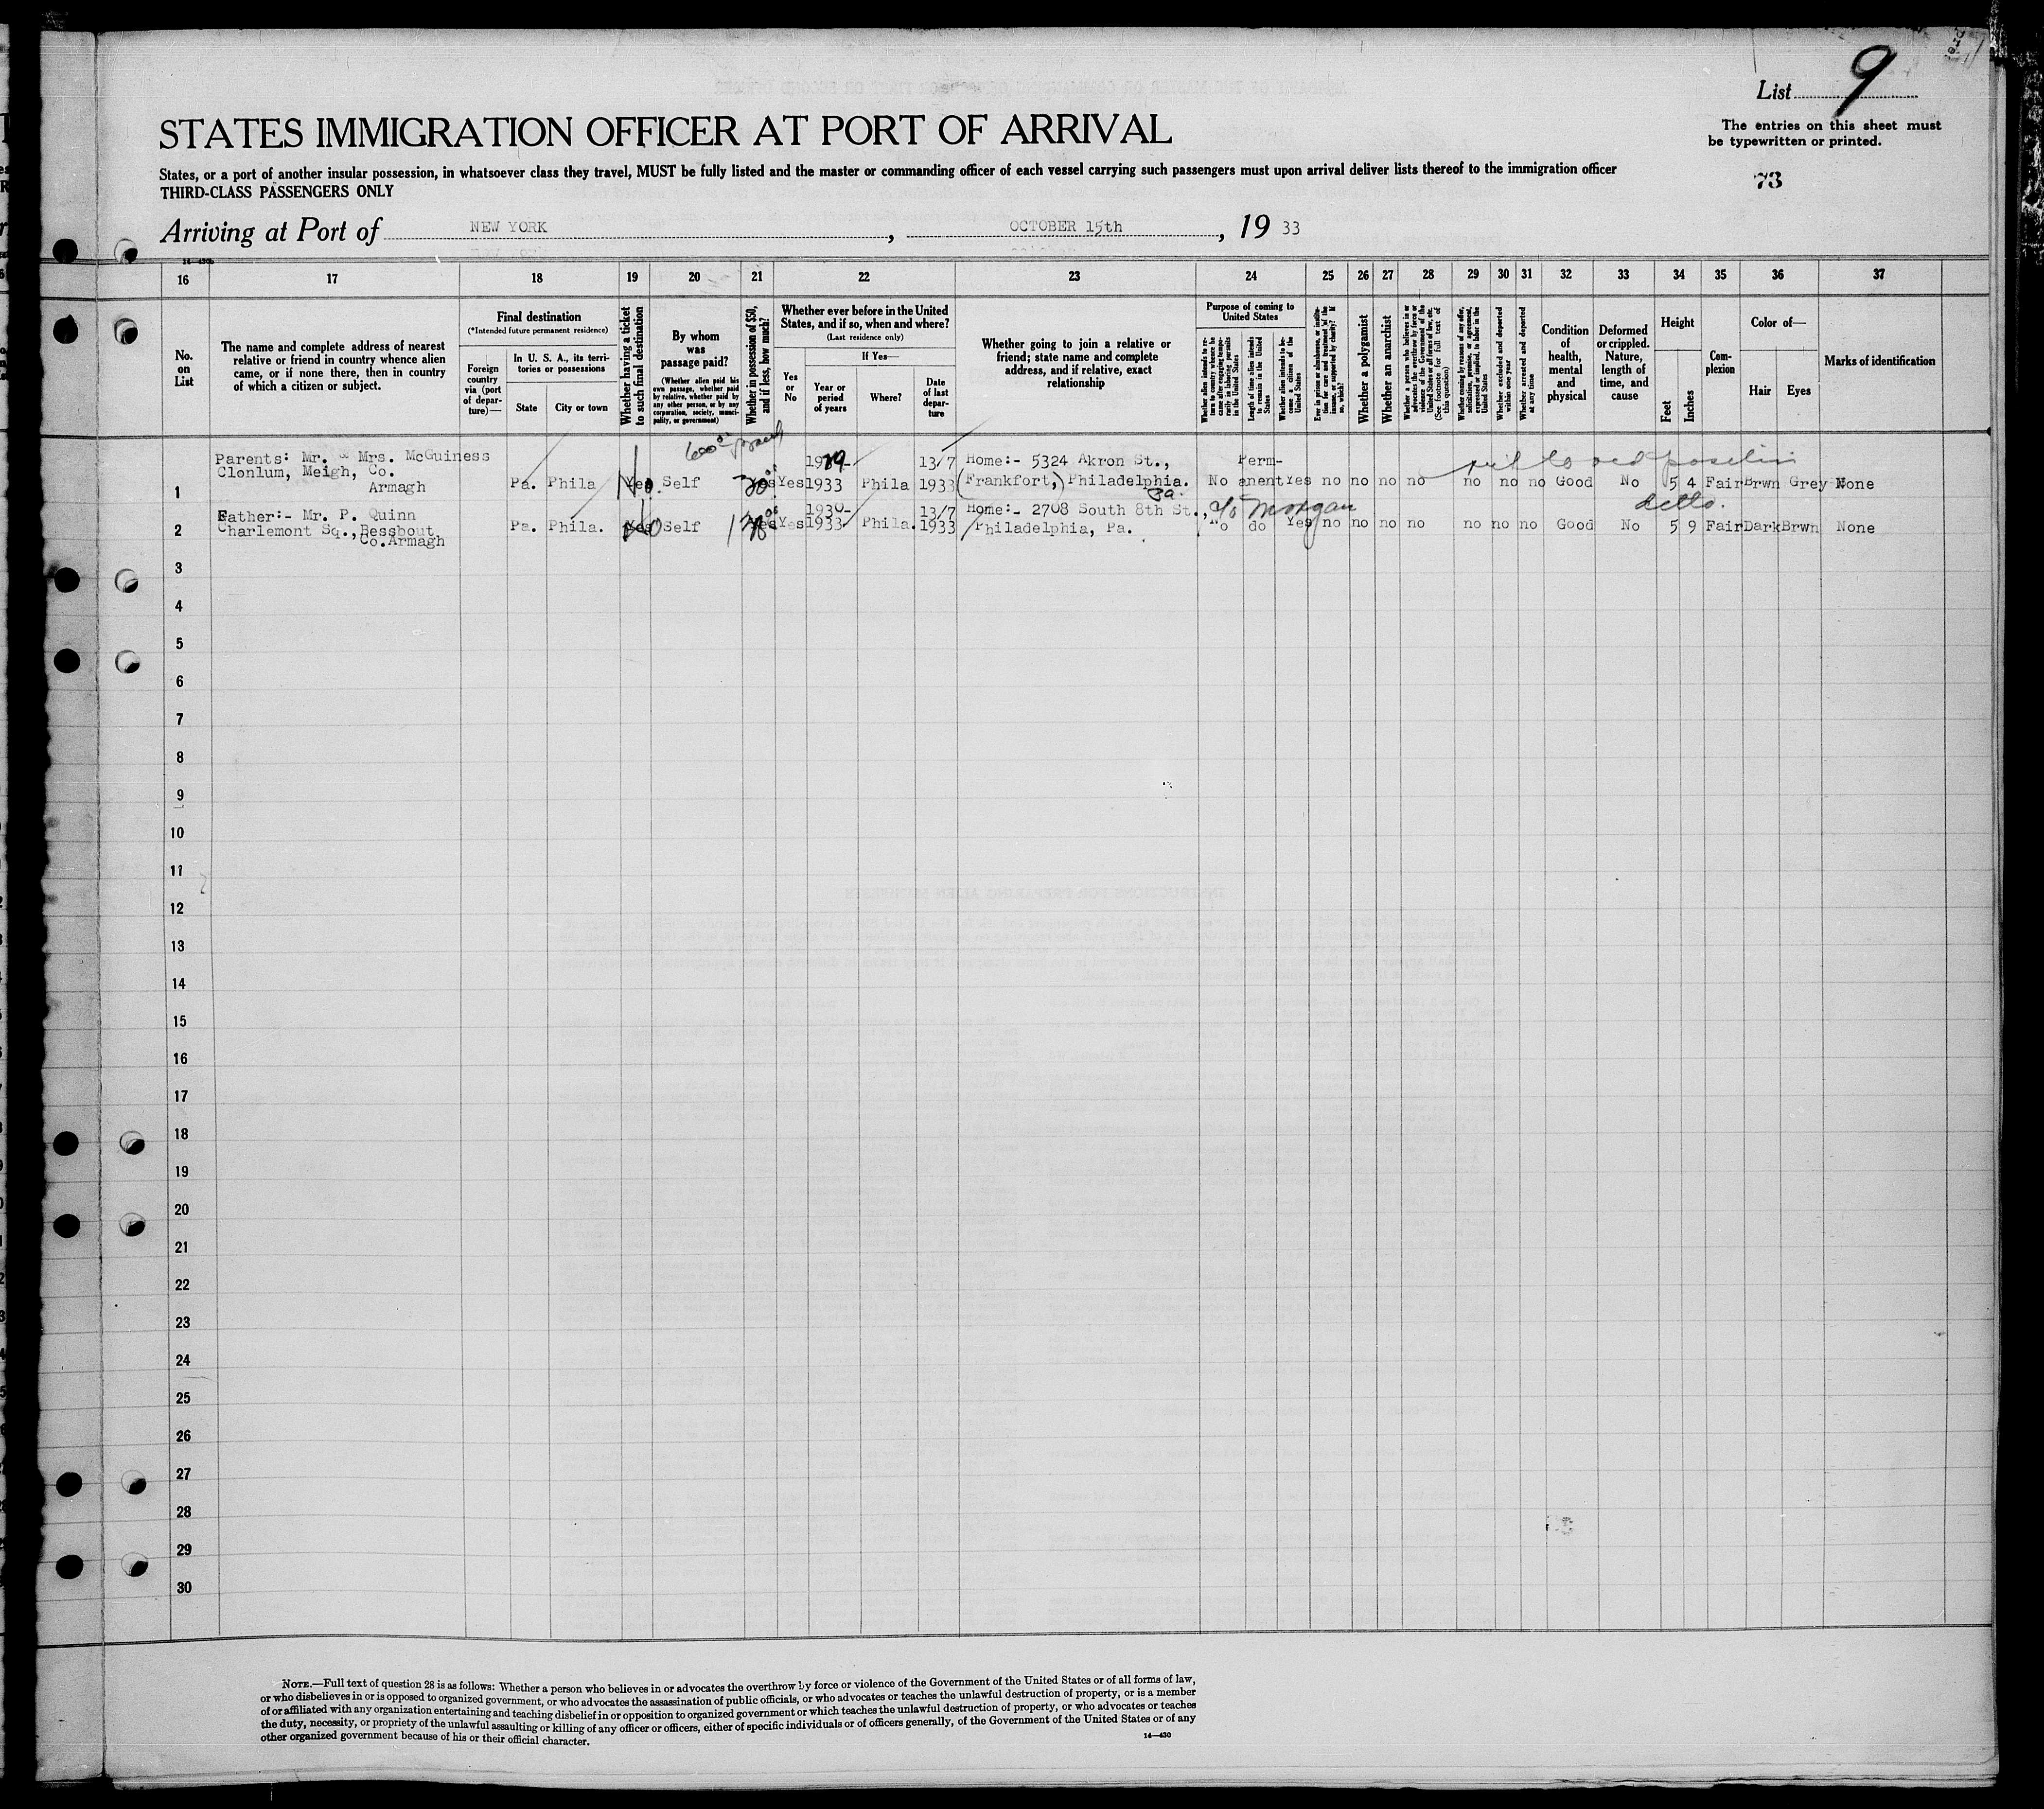 List 9
STATES IMMIGRATION OFFICER AT PORT OF ARRIVAL
The entries on this sheet must
be typewritten or printed.
States, or a port of another insular possession, in whatsoever class they travel, MUST be fully listed and the master or commanding officer of each vessel carrying such passengers must upon arrival deliver lists thereof to the immigration officer
THIRD-CLASS PASSENGERS ONLY
73
Arriving at Port of NEW YORK, OCTOBER 15th, 19 33
16 17 18 19 20 21 22 23 24 25 26 27 28 29 30 31 32 33 34 35 36 37
No. on List
The name and complete address of nearest
relative or friend in country whence alien
came, or if none there, then in country
of which a citizen or subject.
Final destination
(*Intended future permanent residence)
Foreign country via (port of departure)—
In U. S. A., its territories or possessions
State
City or town
Whether having a ticket to such final destination
By whom was passage paid?
(Whether alien paid his own passage, whether paid by relative, whether paid by any other person, or by any corporation, society, municipality, or government)
Whether in possession of $50, and if less, how much?
Whether ever before in the United States, and if so, when and where?
(Last residence only)
Yes or No
If Yes—
Year or period of years
Where?
Date of last departure
Whether going to join a relative or
friend; state name and complete
address, and if relative, exact
relationship
Purpose of coming to United States
Whether alien intends to return to country whence he came after engaging temporarily in laboring pursuits in the United States
Length of time alien intends to remain in the United States
Whether alien intends to become a citizen of the United States
Ever in prison or almshouse, or institution for care and treatment of the insane, or supported by charity? If so, which?
Whether a polygamist
Whether an anarchist
Whether a person who believes in or advocates the overthrow by force or violence of the Government of the United States or all forms of law, etc. (See footnote for full text of this question)
Whether coming by reasons of any offer, solicitation, promise, or agreement, expressed or implied, to labor in the United States
Whether excluded and deported within one year
Whether arrested and deported at any time
Condition of health, mental and physical
Deformed or crippled. Nature, length of time, and cause
Height
Feet
Inches
Complexion
Color of—
Hair
Eyes
Marks of identification
Parents: Mr. & Mrs. McGuiness
Clonlum, Meigh, Co.
Armagh
1 Pa. Phila No. Self 30 Yes 1929- 1933 Phila 13/7 1933 Home:- 5324 Akron St., (Frankfort,) Philadelphia. Pa. No Perm-anent Yes no no no no no no no Good No 5 4 Fair Brwn Grey None
Father:- Mr. P. Quinn
Charlemont Sq., Bessbout,
Co. Armagh
2 Pa. Phila. No Self Yes 1930- 1933 Phila. 13/7 1933 Home:- 2708 South 8th St., c/o Morgan Philadelphia, Pa. No do Yes no no no no no no no Good No 5 9 Fair Dark Brwn None
ditto.
3
4
5
6
7
8
9
10
11
12
13
14
15
16
17
18
19
20
21
22
23
24
25
26
27
28
29
30
NOTE.—Full text of question 28 is as follows: Whether a person who believes in or advocates the overthrow by force or violence of the Government of the United States or of all forms of law,
or who disbelieves in or is opposed to organized government, or who advocates the assassination of public officials, or who advocates or teaches the unlawful destruction of property, or is a member
of or affiliated with any organization entertaining and teaching disbelief in or opposition to organized government or which teaches the unlawful destruction of property, or who advocates or teaches
the duty, necessity, or propriety of the unlawful assaulting or killing of any officer or officers, either of specific individuals or of officers generally, of the Government of the United States or of any
other organized government because of his or their official character.
14—430